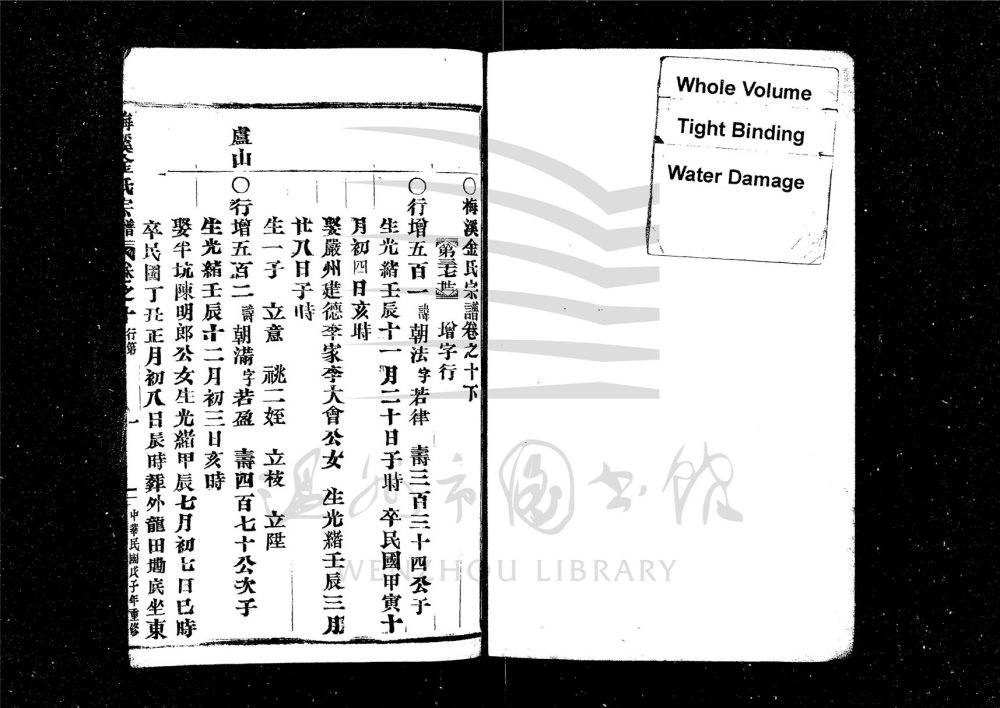 ○梅溪金氏宗譜卷之十下
第三七世 增字行
○行增五百一諱朝法字若律 壽三百三十四公子
生光緒壬辰十一月二十日子時 卒民國甲寅十
月初四日亥時
娶嚴州建德李家李大會公女 生光緒壬辰三月
廿八日子時
生一子 立意 祧二姪 立枝 立陞
盧山○行增五百二諱朝滿字若盈 壽四百七十公次子
生光緒壬辰十二月初三日亥時
娶半坑陳明郎公女生光緒甲辰七月初七日巳時
卒民國丁丑正月初八日辰時葬外龍田墈底坐東
梅溪金氏宗譜 卷之十 行第 一 中華民國戊子年重修
Whole Volume
Tight Binding
Water Damage
溫州市圖書館
WENZHOU LIBRARY